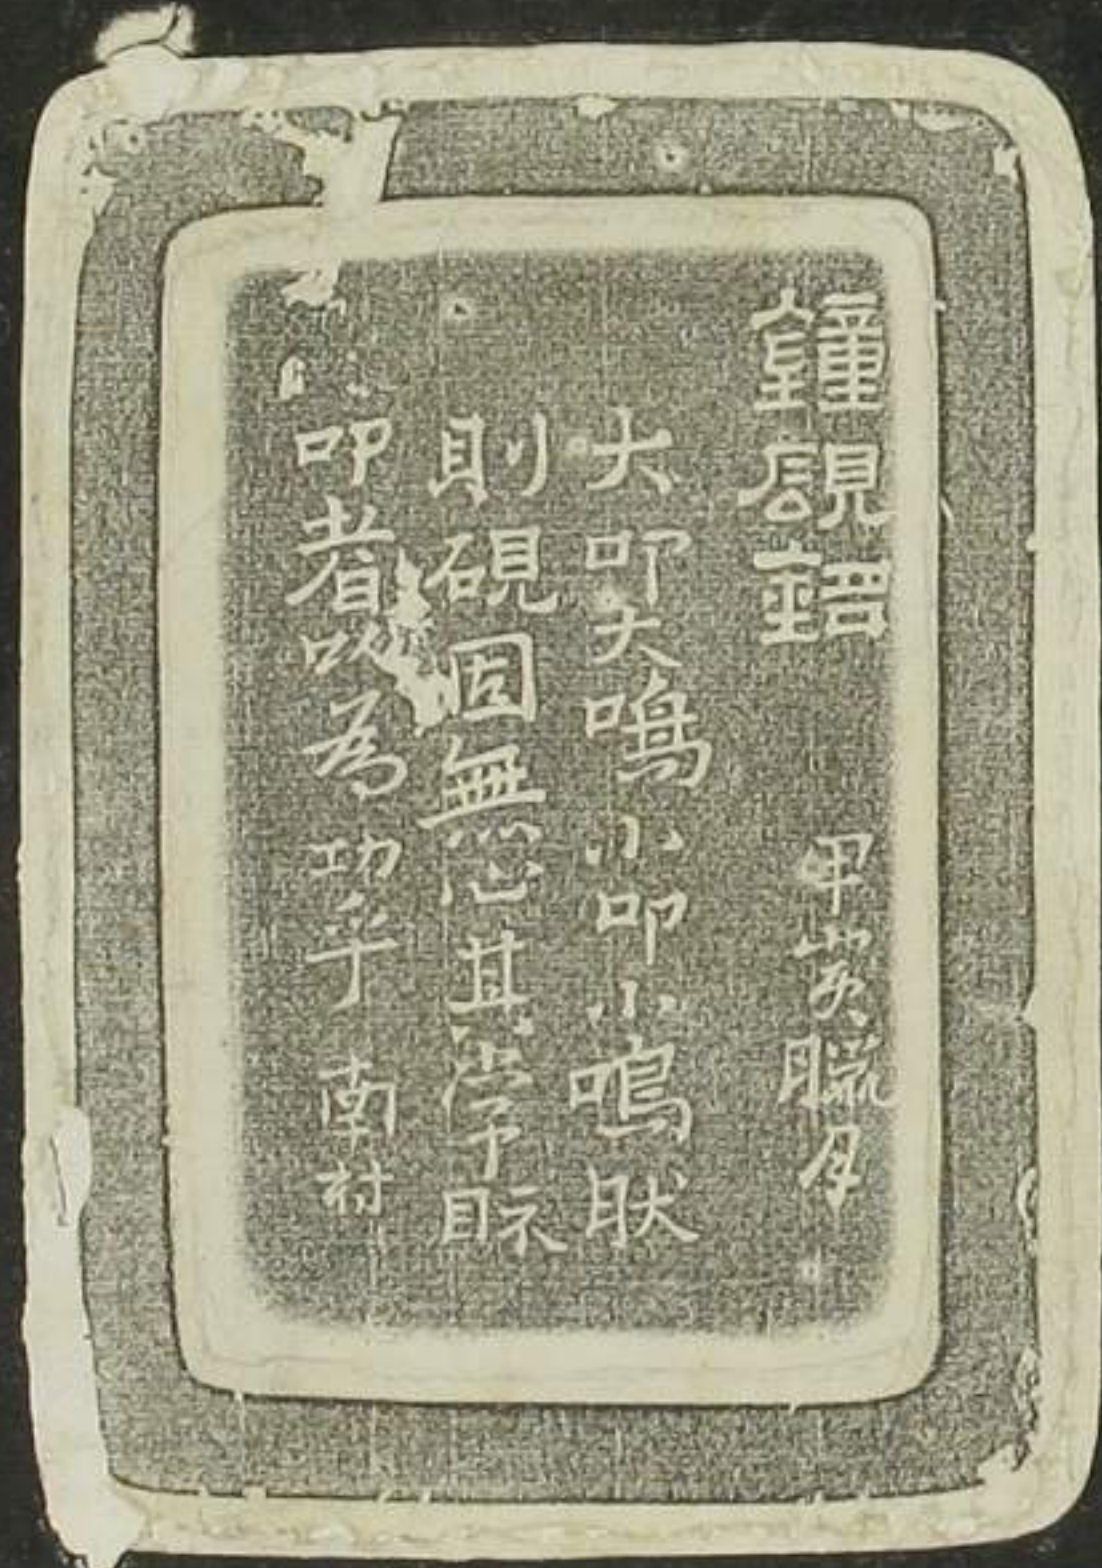 鐘硯銘 甲寅臘月
大叩大鳴小叩小鳴肰
則硯固無心其常眎
叩者以為功乎 南村